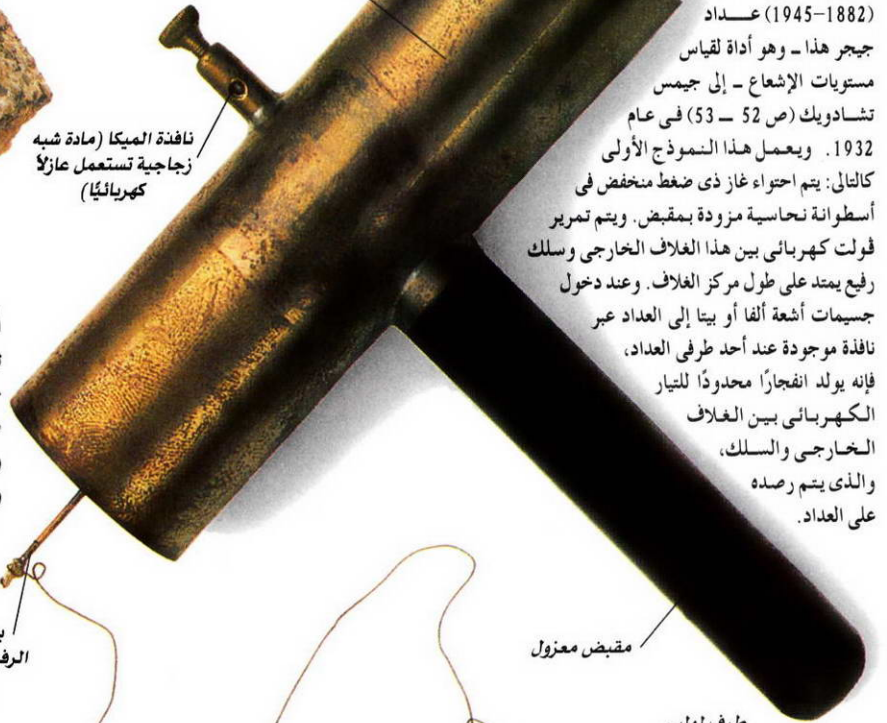 (1882–1945) عـــداد
جيجر هذا ــ وهو أداة لقياس
مستويات الإشعاع ــ إلى جيمس
تشــادويك (ص 52 ــ 53) فـى عـام
1932. ويـعـمـل هـذا الـنـمـوذج الأولى
كالتالى: يتم احتواء غاز ذى ضغط منخفض فى
أسطوانة نـحـاسية مـزودة بـمـقبض. ويـتـم تمرير
ڤولت كهربائى بين هذا الغلاف الخارجى وسلك
رفيع يمتد على طول مركز الغلاف. وعند دخول
جسيمات أشعة ألفا أو بيتا إلى العداد عبر
نافذة موجودة عند أحد طرفى العداد،
فإنه يولد انفجارًا محدودًا للتيار
الـكـهـربـائـى بـيـن الـغـلاف
الـخـارجـى والـسـلـك،
والـذى يـتـم رصـده
على العداد.
نافذة الميكا (مادة شبه
زجاجية تستعمل عازلاً
كهربائيًا)
مقبض معزول